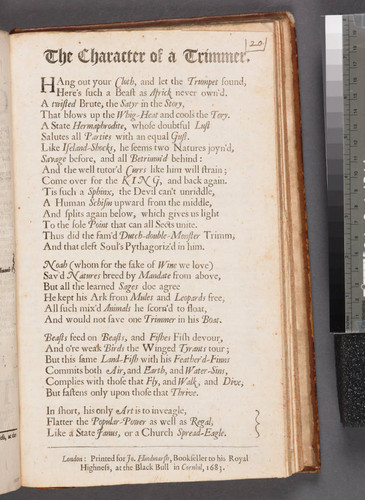 20
The Character of a Trimmer.
HAng out your Cloth, and let the Trumpet sound,
Here's such a Beast as Africk never own'd.
A twisted Brute, the Satyr in the Story,
That blows up the Whig-Heat and cools the Tory.
A State Hermaphrodite, whose doubtful Lust
Salutes all Parties with an equal Gust.
Like Iseland-Shocks, he seems two Natures joyn'd,
Savage before, and all Betrimm'd behind:
And the well tutor'd Curs like him will strain;
Come over for the KING, and back again.
'Tis such a Sphinx, the Devil can't unriddle,
A Human Schism upward from the middle,
And splits again below, which gives us light
To the sole Point that can all Sects unite.
Thus did the fam'd Dutch-double-Monster Trimm,
And that cleft Soul's Pythagoriz'd in him.
Noah (whom for the sake of Wine we love)
Sav'd Natures breed by Mandate from above,
But all the learned Sages doe agree
He kept his Ark from Mules and Leopards free,
All such mix'd Animals he scorn'd to float,
And would not save one Trimmer in his Boat.
Beasts feed on Beasts, and Fishes Fish devour,
And o're weak Birds the Winged Tyrants tour;
But this same Land-Fish with his Feather'd-Finns
Commits both Air, and Earth, and Water-Sins,
Complies with those that Fly, and Walk, and Dive,
But fastens only upon those that Thrive.
In short, his only Art is to inveagle,
Flatter the Popular-Power as well as Regal,
Like a State Janus, or a Church Spread-Eagle.
London: Printed for Jo. Hindmarsh, Bookseller to his Royal
Highness, at the Black Bull in Cornhil, 1683.